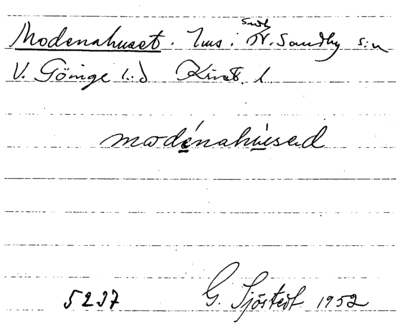 Modenahuset. Hus i N. Sandby sn
V. Göinge hd Krist. l
modénahùsəd
5237 G. Sjöstedt 1952